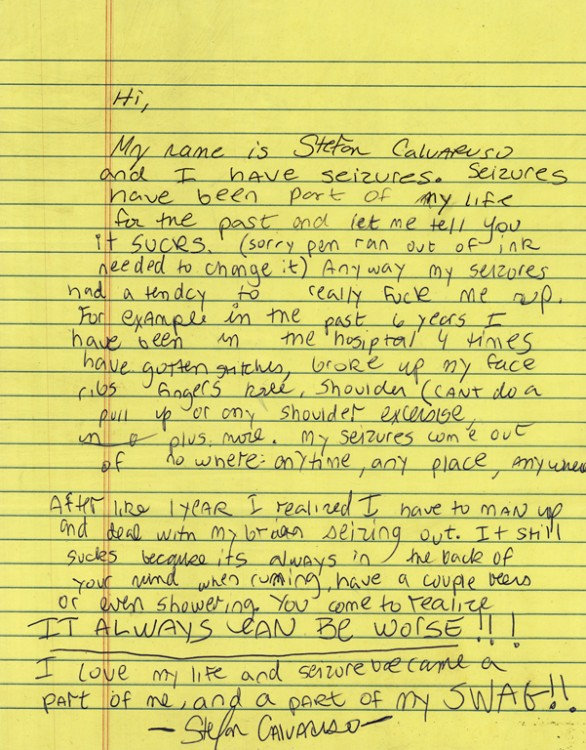 Hi,
My name is Stefon Calvaruso
and I have seizures. Seizures
have been part of my life
for the past and let me tell you
it sucks. (sorry pen ran out of ink
needed to change it) Anyway my seizures
had a tendcy to really fuck me up.
For example in the past 6 years I
have been in the hosiptal 4 times
have gotten stitches, broke up my face
ribs fingers knee, shoulder (can't do a
pull up or any shoulder excersise,
plus more. My seizures come out
of no where: anytime, any place, anywhere
After like 1 year I realized I have to man up
and deal with my brain seizing out. It still
sucks because its always in the back of
your mind when running, have a couple beers
or even showering. You come to realize
IT ALWAYS CAN BE WORSE!!!
I love my life and seizure became a
part of me, and a part of my SWAG!!.
- Stefon Calvaruso -